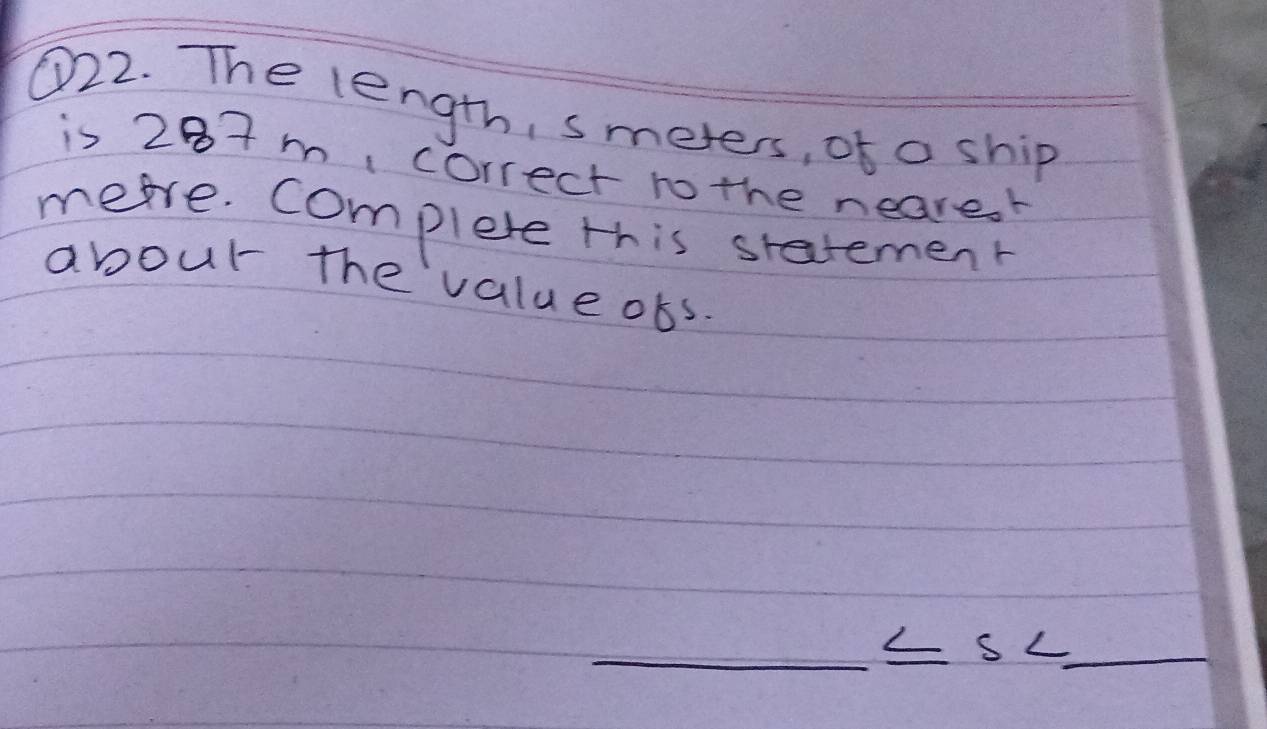 Q22. The length, s meters, of a ship
is 287 m, correct to the nearest
metre. Complete this statement
about the value of s.
≤ s <